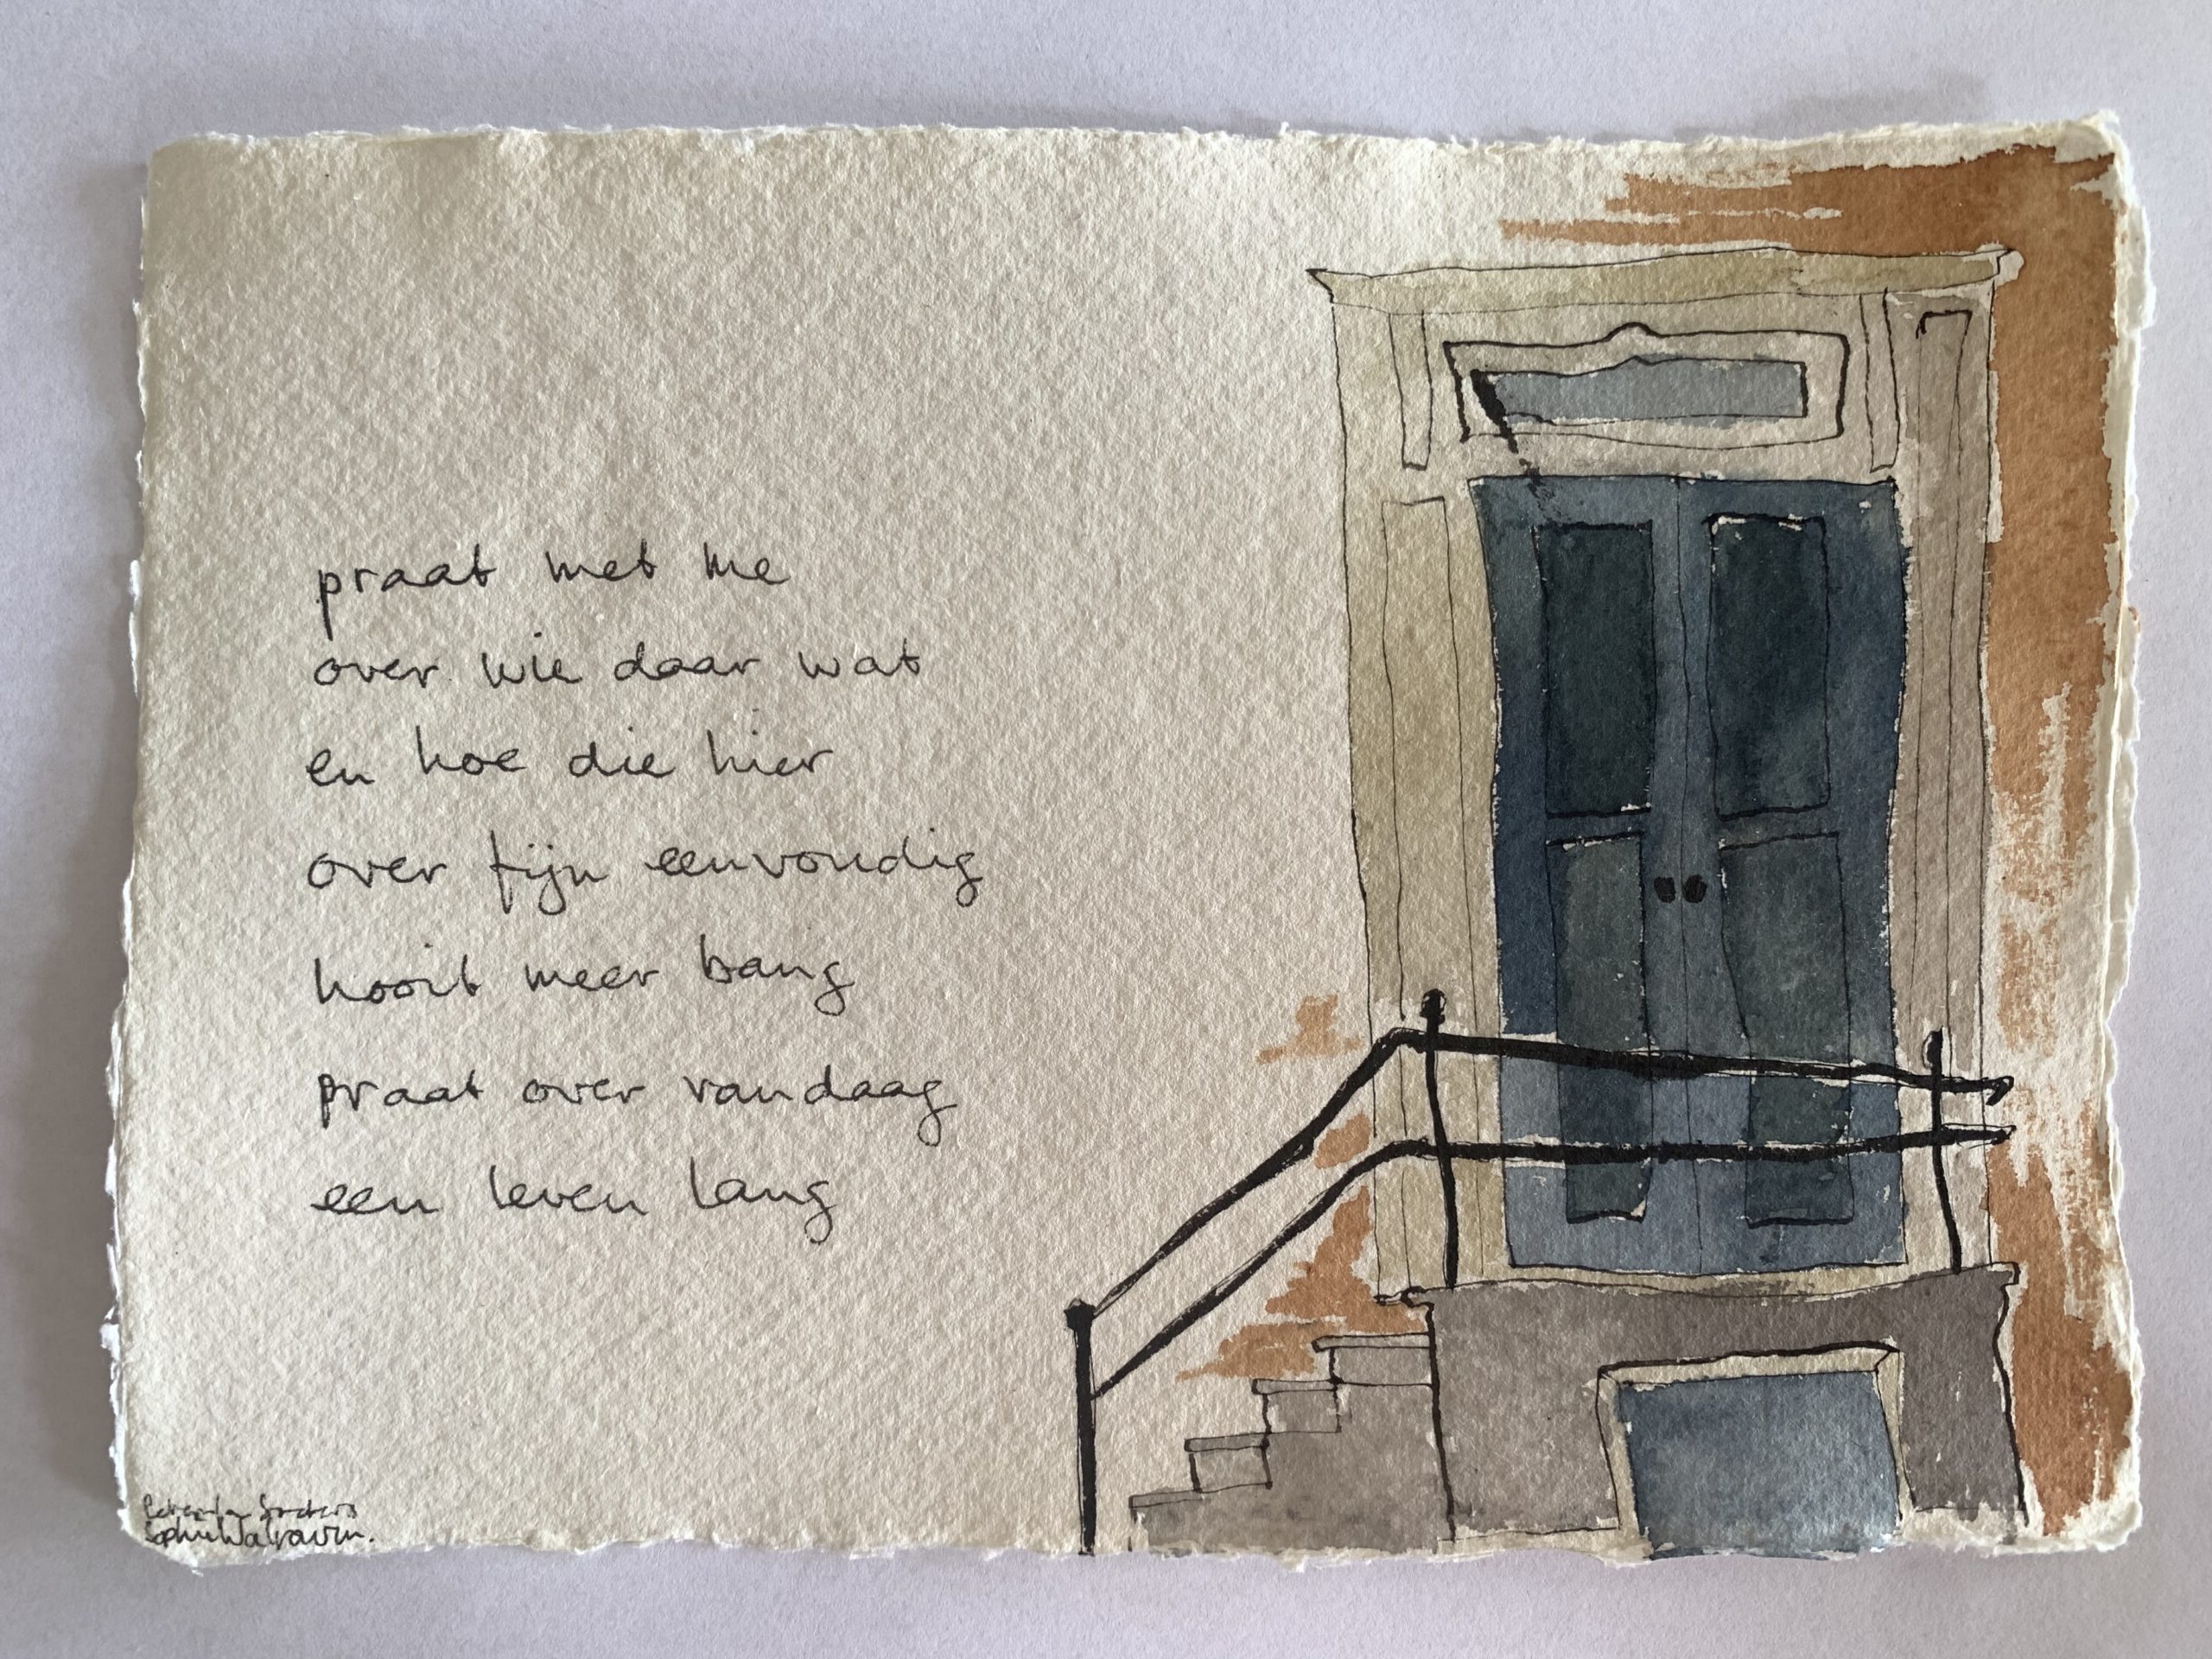 praat met me
over wie daar wat
en hoe die hier
over fijn eenvoudig
nooit meer bang
praat over vandaag
een leven lang